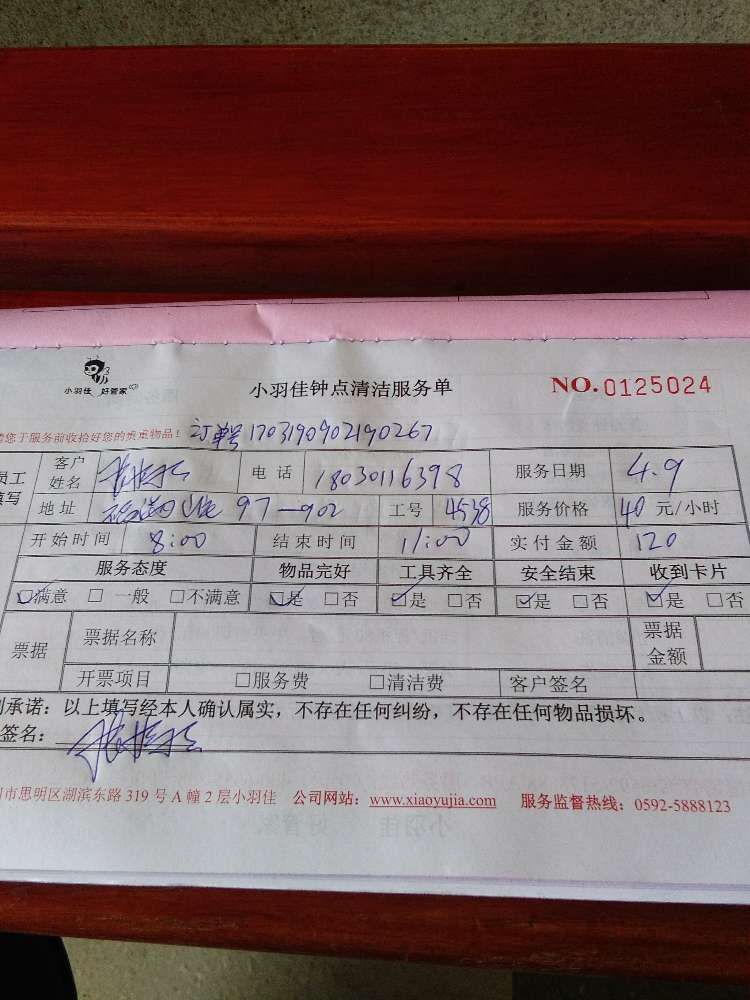 小羽佳 好管家
小羽佳钟点清洁服务单
NO.0125024
您于服务前收拾好您的贵重物品！ 订单号1703190902190267
员工填写 客户姓名 电话 18030116398 服务日期 4.9
地址 97-902 工号 4538 服务价格 40 元/小时
开始时间 8:00 结束时间 11:00 实付金额 120
服务态度 物品完好 工具齐全 安全结束 收到卡片
☑满意 □一般 □不满意 ☑是 □否 ☑是 □否 ☑是 □否 ☑是 □否
票据 票据名称 票据金额
开票项目 □服务费 □清洁费 客户签名
承诺：以上填写经本人确认属实，不存在任何纠纷，不存在任何物品损坏。
签名：
市思明区湖滨东路 319 号 A 幢 2 层小羽佳 公司网站：www.xiaoyujia.com 服务监督热线：0592-5888123